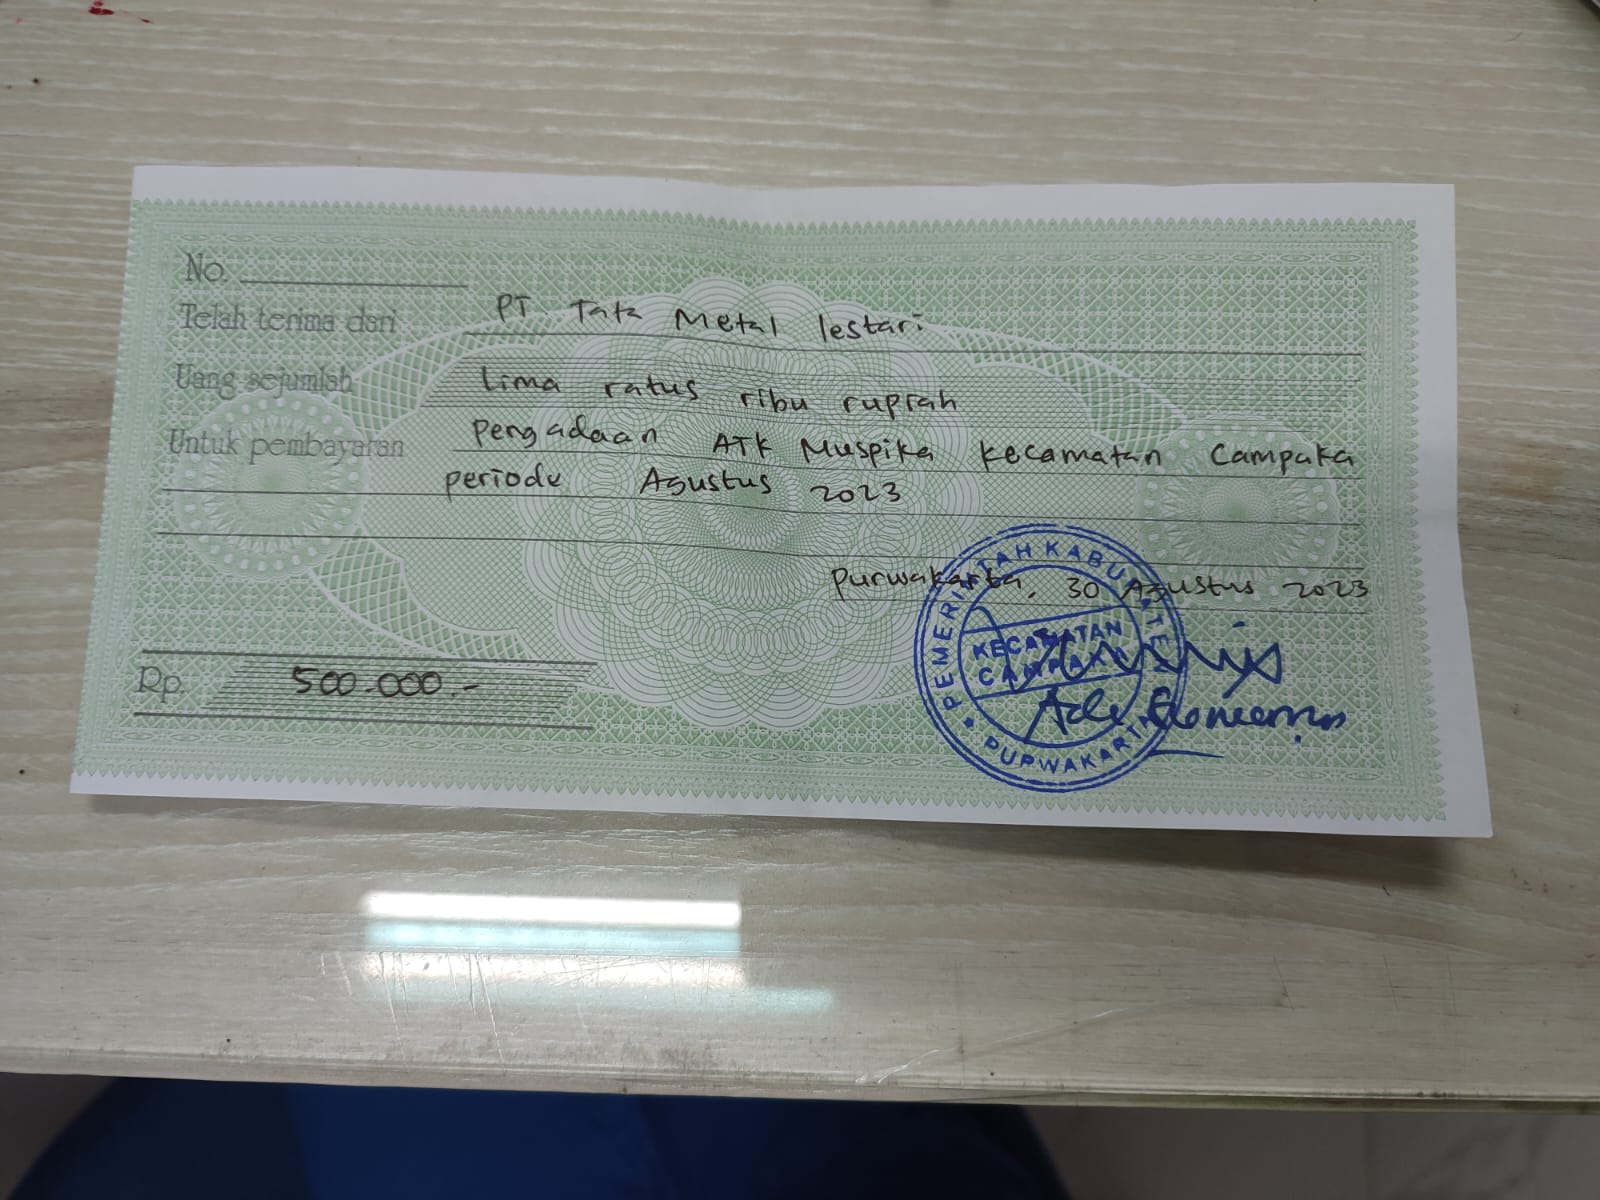 No.
Telah terima dari PT. Tata Metal lestari
Uang sejumlah Lima ratus ribu rupiah
Untuk pembayaran Pengadaan ATK Muspika Kecamatan Campaka
periode Agustus 2023
Purwakarta, 30 Agustus 2023
PEMERINTAH KABUPATEN
KECAMATAN
CAMPAKA
PURWAKARTA
Rp. 500.000.-
Ade